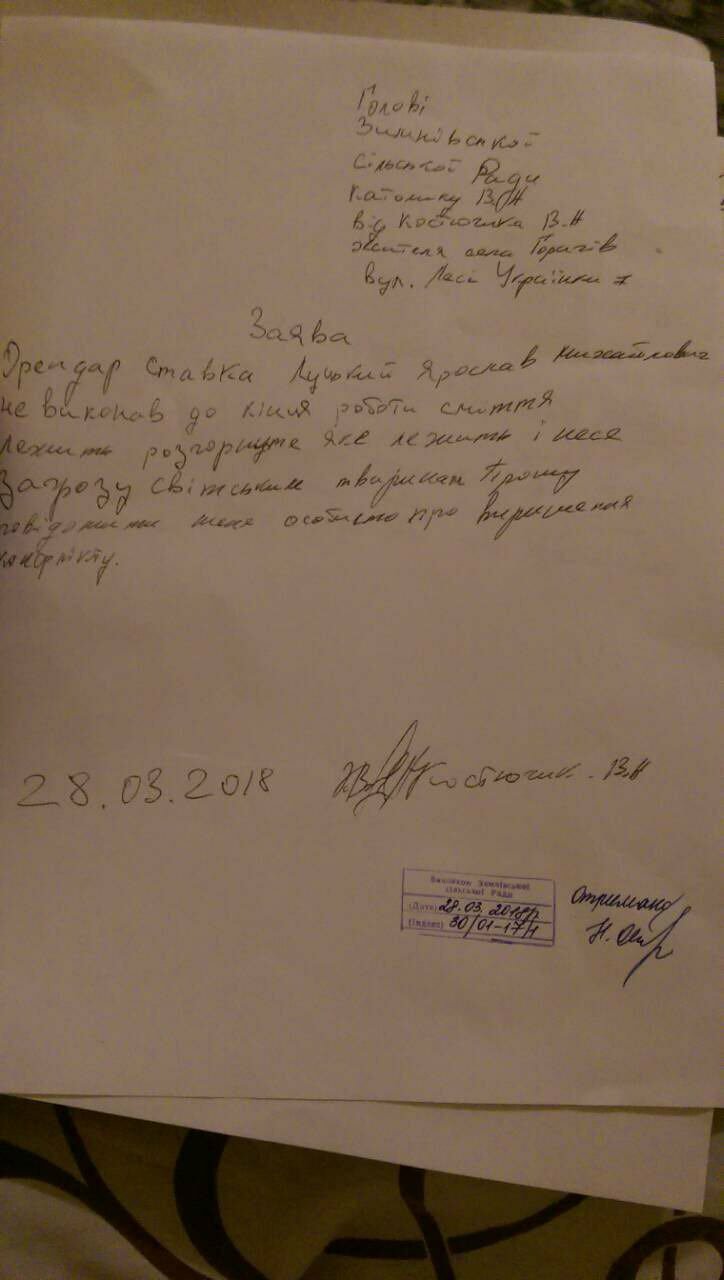 Голові
Зимнівської
сільської Ради
Католику В.А
від Костючика В.А
жителя села Горичів
вул. Лесі Українки 7
Заява
Орендар ставка Луцький Ярослав Михайлович
не виконав до кінця роботи сміття
лежить розгорнуте яке лежить і несе
загрозу свійським тваринам Прошу
повідомити мене особисто про вирішення
конфлікту.
28.03.2018 Костючик. В.А
Виконком Зимнівської
сільської Ради
(Дата) 28.03.2018р
(Індекс) 30/01-17/1
Отримано
Н.